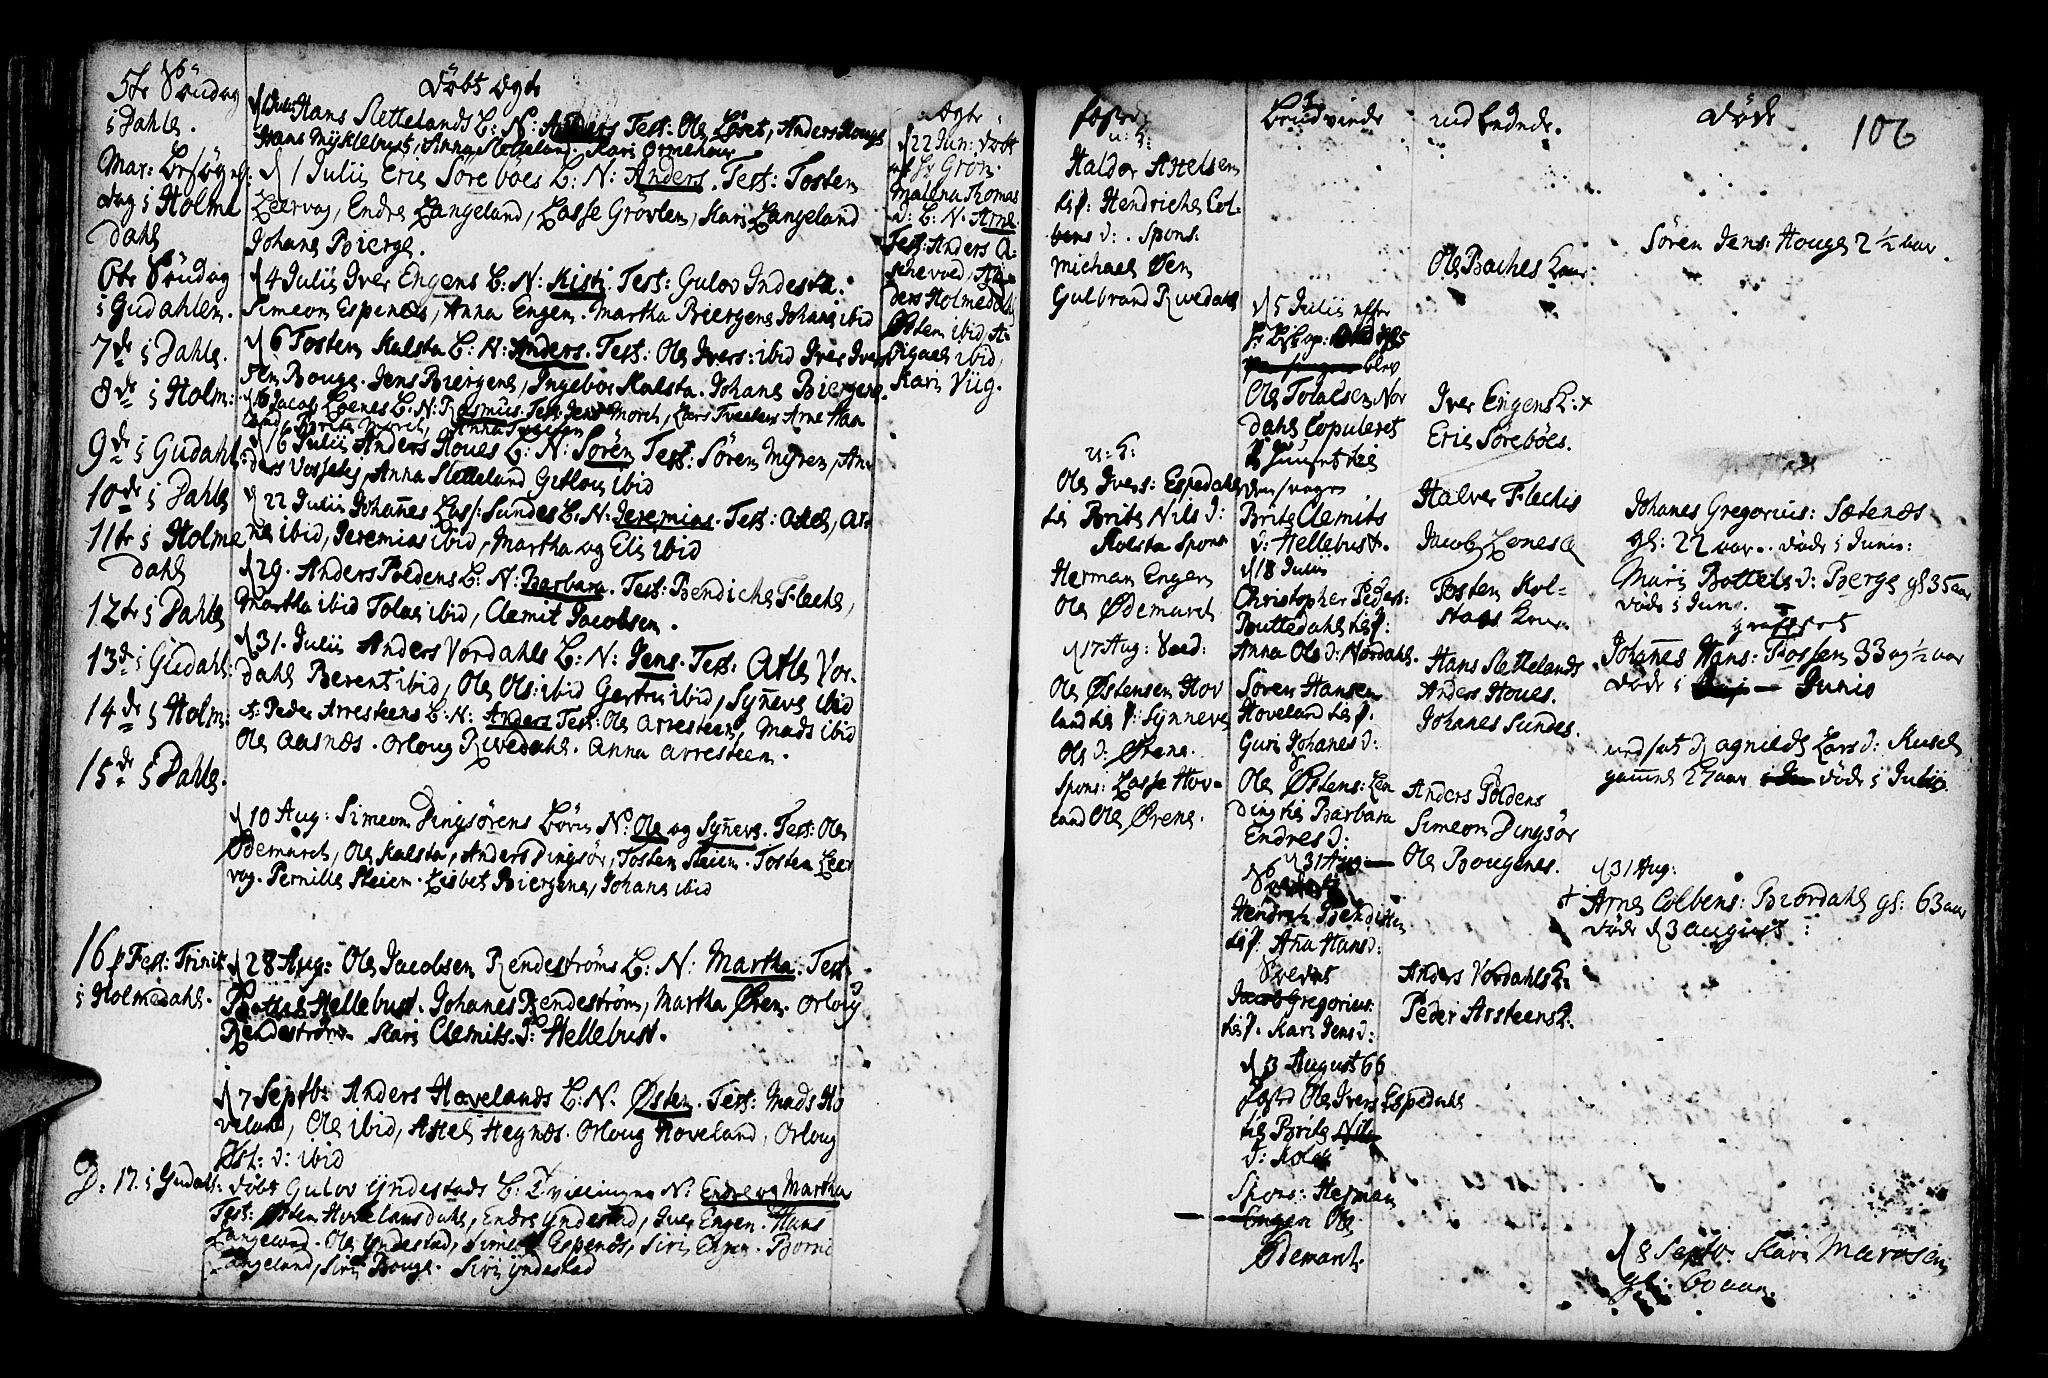 5te Søndag
i Dahle.
Mar: Besøgels:
dag i Holme
dahl
6te Søndag
i Gudahlen.
7de i Dahle.
8de i Holm:
9de i Gudahl:
10de i Dahle
11te i Holme
dahl
12te i Dahle
13de i Gudahl:
14de i Holm:
15de i Dahle.
16 p Fest: Trinit:
i Holmedahl.
D: 17. i Gudahl:
Døbt ægte
Hans Slettelands B: N: Anders Test: Ole Løset, Anders Houge
Hans Mykklebust, Anna Sletteland. Kari Ormehour
d 1 Julii Eric Sørebøes B: N: Anders. Test: Tosten
Leervog, Endre Langeland, Lasse Grøvlen, Kari Langeland
Johane Bierge.
d 4 Julii Iver Engens B: N: Kisti. Test: Gulov Indesta.
Simeon Espenes, Anna Engen. Martha Biergene Johane ibid
d 6 Tosten Kalsta B: N: Anders. Test: Ole Ivers: ibid Iver Iver
sen Bouge. Jens Biergene, Ingebor Kalsta. Johane Biergene.
Jacob Loenes B: N: Rasmus. Test: Jens Morch, Lars Tveeten Arne Haa
land, Marite Morch, Anna Tveeten
d 16 Julii Anders Houes B: N: Søren Test: Søren Myren, An
ders Vossales, Anna Sletteland Gitlou ibid
d 22 Julii Johanes Lass: Sundes B: N: Jeremias. Test: Atle, Ar
ne ibid, Jeremias ibid, Martha og Elis ibid
d 29. Anders Poldens B: N: Barbara. Test: Bendichs Fleche,
Martha ibid Tolas ibid, Clemit Jacobsen.
d 31. Julii Anders Vordahls B: N: Jens. Test: Atle Vor-
dahl Berent ibid, Ole Ols: ibid Gertru ibid, Synneve ibid
d: Peder Arresteens B: N: Anders Test: Ole Arresteen, Mads ibid
Ole Aasnæs. Orloug Rivedahl. Anna Arresteen.
d 10 Aug: Simeon Dingsørens Børn N: Ole og Synneve. Test: Ole
Ødemarch, Ole Kalsta, Anders Dingsør, Tosten Steien. Tosten Leer
vog. Pernille Steien. Lisbet Biergene, Johane ibid
d 28 Aug: Ole Jacobsen Rendestrøms B: N: Martha. Test:
Hellebust. Johanes Rendestrøm, Martha Øren. Orloug
Rendestrøm. Kari Clemits: D: Hellebust.
d 7 Septbr Anders Hovelands B: N: Østen. Test: Mads Ho
veland, Ole ibid, Atle Hegnæs. Orloug Hoveland, Orloug
Øst: d: ibid
døbt Gulov Yndestads B: Tvillinger N: Endre og Martha
Test: Østen Hovelandsdahl, Endre Yndestad, Iver Engen. Hans
Langeland. Ole Yndestad, Simeon Espenes, Siri Engen. Borni
Langeland, Siri Bouge. Siri Yndestad
uægte
d 22 Jun: døbt
Grøn.
Malena Thomas
d: B: N. Arne
Test: Anders A-
schevoed, An-
ders Holmedahl
Østen ibid, A-
bigael ibid,
Kari Viig.
fæste
u: h:
Haldor Axelsen
til J: Hendriche Col-
bens d:. Spons:
Michael Øen
Gulbrand Rivedahl
u: h:
Ole Ivers: Espedahl
til Brite Nils d:
Kolsta Spons
Herman Engen
Ole Ødemarch
d 17 Aug:
Ole Østensen Hov
land til J: Synneve
Ole d: Ørene.
Spons: Lasse Hov-
land Ole Ørene.
Brudviede
d 5 Julii efter
blev
Ole Tolalsen Nor
dahl Copuleret
Brite Clemits
d: Hellebust.
d 18 Julii
Christopher Peders:
Buttedahl til J:
Anna Ols d: Nordahl.
Søren Hansen
Hoveland til J.
Guri Johanes d:
Ole Østens: Len
ding til Barbara
Endres d:
d 31 Aug
Hendrich Bendixen
til J: Anna Hans d:
Gregorius:
til J. Kari Jens d:
d 3 August 66
fæsted Ole Ivers Espedahl
til Brite Nils
d: Kolsta
Spons: Herman
Engen Ole
Ødemarch.
indledede.
Ole Boches Kone:
Iver Engens K:
Eric Sørebøes.
Halver Flechis
Jacob Lones
Tosten Kol-
staes Kone
Hans Slettelands
Anders Houes.
Johanes Sundes.
Anders Poldens
Simeon Dingsør
Ole Bougenes.
Anders Vordahls K:
Peder Arsteens K:
Døde
106
Søren Jens: Houge 2 1/2 aar.
Johanes Gregorius: Sætenæs
gl: 22 aar. døde i Junio:
Mari Bottels d: Berge gl 35 aar
døde i Jun.
grafsat
Johannes Hans: Fossen 33 og 1/2 aar
døde i Junio
nedsat Ragnilde Lars d: Kusle
gammel 27 aar døde i Julio.
d 31 Aug:
† Arne Colbens: Biordahl gl: 63 aar
døde d 3 august:
d 8 Septbr Kari
gl: 60 aar.